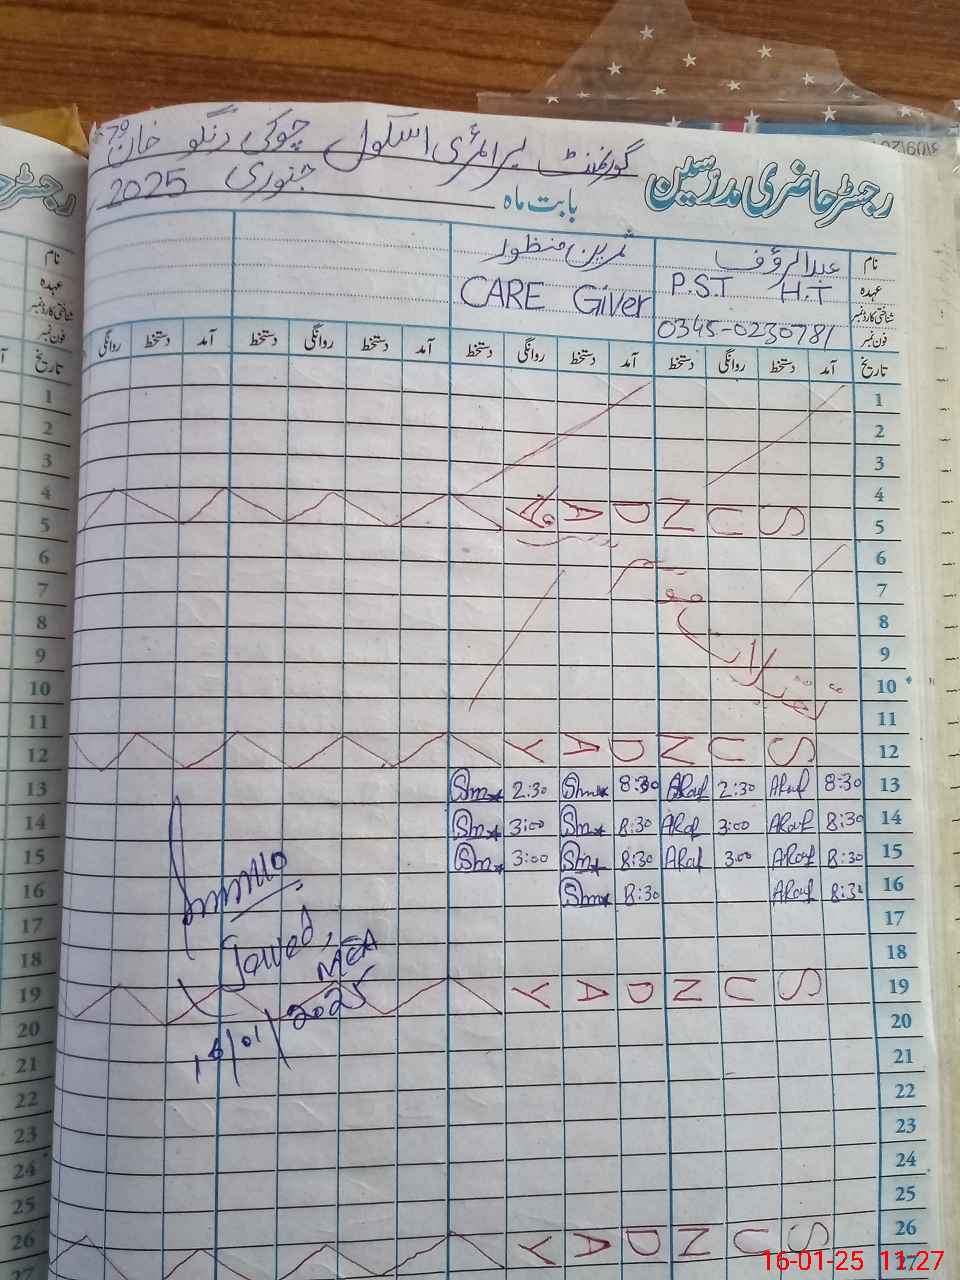 گورنمنٹ پرائمری اسکول چوکی دنگو خان
رجسٹر حاضری مدرسین
بابت ماہ جنوری 2025
نام عبدالرؤف ثمرین منظور
عہدہ P.S.T H.T CARE Giver
شناختی کارڈ نمبر
فون نمبر 0345-0230781
تاریخ آمد دستخط روانگی دستخط آمد دستخط روانگی دستخط آمد دستخط روانگی دستخط آمد دستخط روانگی
1
2
3
4
5 SUNDAY
6
7
8
9
10
11
12 SUNDAY
13 8:30 ARauf 2:30 ARauf 8:30 Sm 2:30 Sm
14 8:30 ARauf 3:00 ARauf 8:30 Sm 3:00 Sm
15 8:30 ARauf 3:00 ARauf 8:30 Sm 3:00 Sm
16 8:30 ARauf 8:30 Sm
17
18
19 SUNDAY
20
21
22
23
24
25
26 SUNDAY
27
Jawed,
MEA
16/01/2025
16-01-25 11:27